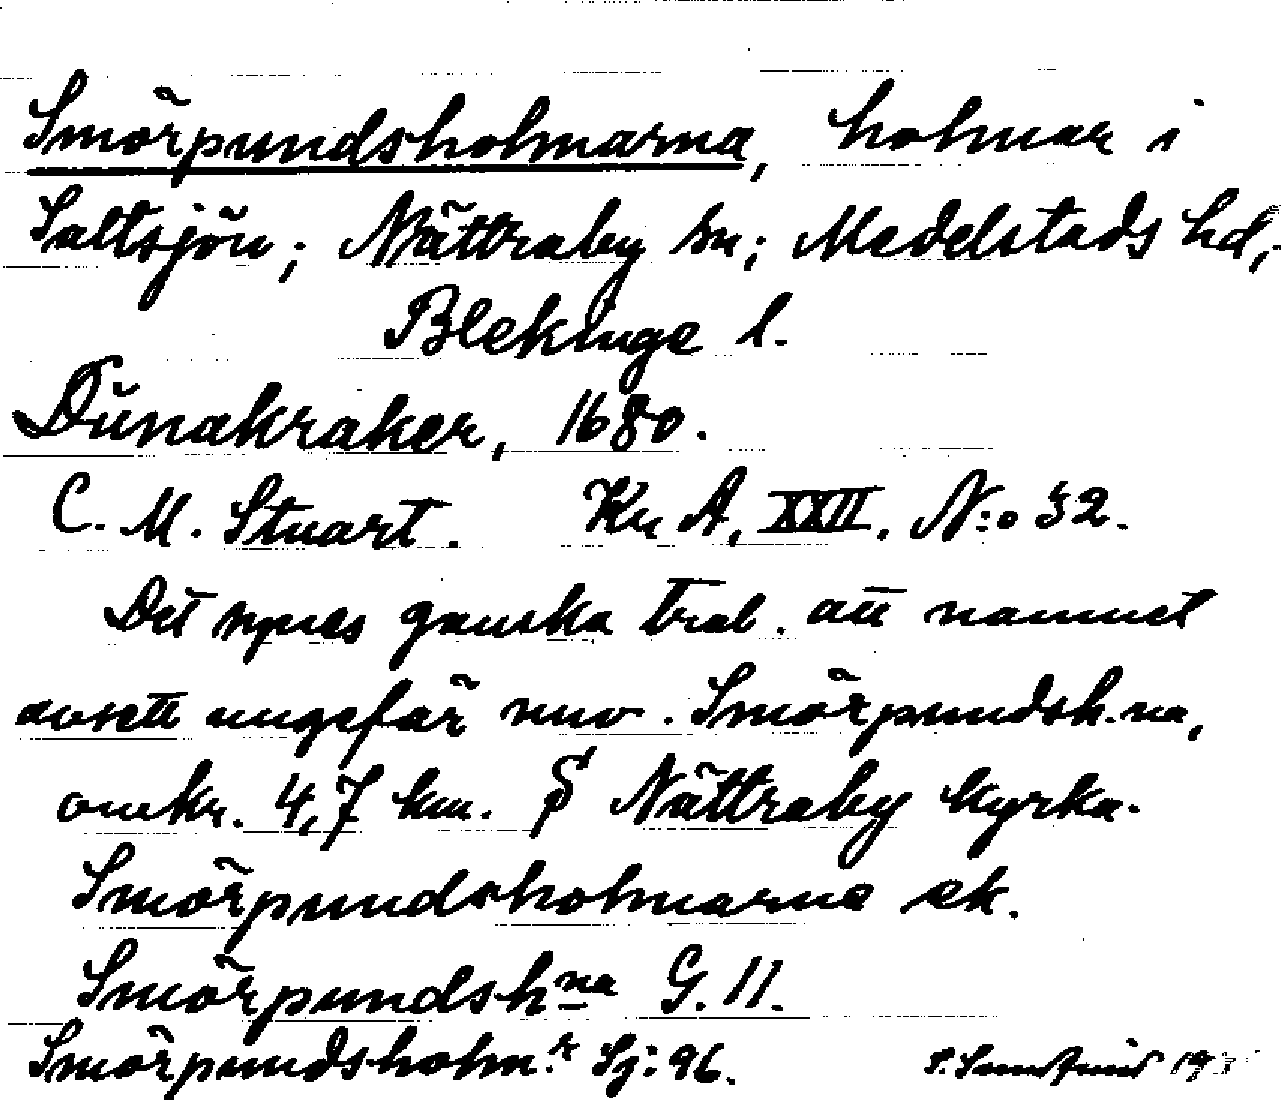 Smörpundsholmarna, holmar i
Saltsjön; Nättraby sn; Medelstads hd,
Blekinge l.
Dünakraker, 1680.
C. M. Stuart. Kr A, XXII, N:o 32.
Det synes ganska trol. att namnet
avsett ungefär nuv. Smörpundsh.na,
omkr. 4,7 km. S Nättraby kyrka.
Smörpundsholmarna ek.
Smörpundsh.na G. 11.
Smörpundsholm.r Sj: 96.